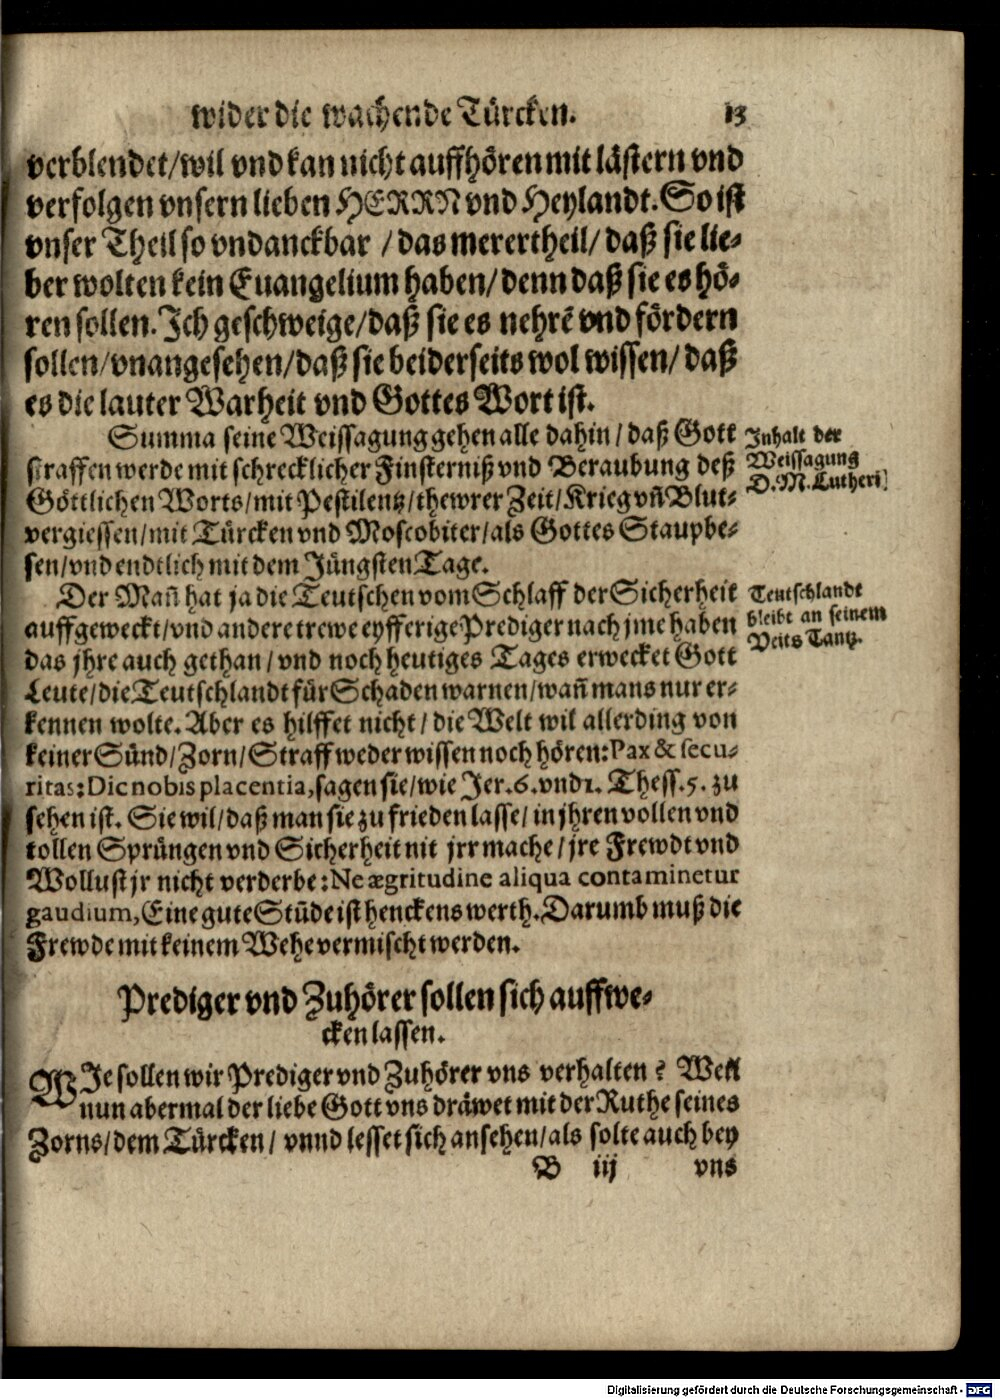 wider die wachende Türcken. 13
verblendet/wil vnd kan nicht auffhören mit lästern vnd
verfolgen vnsern lieben HERRN vnd Heylandt. So ist
vnser Theil so vndanckbar / das merertheil/ daß sie lie-
ber wolten kein Euangelium haben/ denn daß sie es hö-
ren sollen. Ich geschweige/daß sie es nehrē vnd fördern
sollen/vnangesehen/daß sie beiderseits wol wissen/ daß
es die lauter Warheit vnd Gottes Wort ist.
Summa seine Weissagung gehen alle dahin / daß Gott
straffen werde mit schrecklicher Finsterniß vnd Beraubung deß
Göttlichen Worts/mit Pestilentz/thewrer Zeit/Krieg vñ Blut-
vergiessen/mit Türcken vnd Moscobiter/als Gottes Staupbe-
sen/vnd endtlich mit dem Jüngsten Tage.
Inhalt der
Weissagung
D. M. Lutheri.
Der Mañ hat ja die Teutschen vom Schlaff der Sicherheit
auffgeweckt/vnd andere trewe eyfferige Prediger nach jme haben
das jhre auch gethan / vnd noch heutiges Tages erwecket Gott
Leute/die Teutschlandt für Schaden warnen/wañ mans nur er-
kennen wolte. Aber es hilffet nicht / die Welt wil allerding von
keiner Sünd/Zorn/Straff weder wissen noch hören: Pax & secu-
ritas: Dic nobis placentia, sagen sie/wie Jer. 6. vnd 1. Thess. 5. zu
sehen ist. Sie wil/daß man sie zu frieden lasse/ in jhren vollen vnd
tollen Sprüngen vnd Sicherheit nit jrr mache / jre Frewdt vnd
Wollust jr nicht verderbe: Ne ægritudine aliqua contaminetur
gaudium, Eine gute Stūde ist henckens werth. Darumb muß die
Frewde mit keinem Wehe vermischt werden.
Teutschlandt
bleibt an seinem
Veits Tantz.
Prediger vnd Zuhörer sollen sich auffwe-
cken lassen.
WIe sollen wir Prediger vnd Zuhörer vns verhalten? Weil
nun abermal der liebe Gott vns dräwet mit der Ruthe seines
Zorns/dem Türcken/ vnnd lesset sich ansehen/als solte auch bey
B iij vns
Digitalisierung gefördert durch die Deutsche Forschungsgemeinschaft - DFG